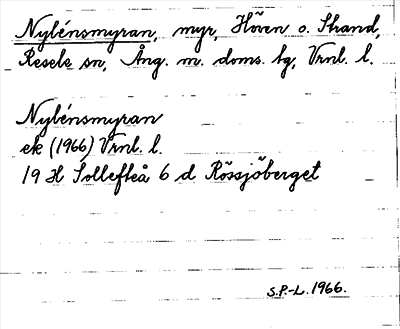 Nylénsmyran, myr, Höven o. Strand,
Resele sn, Ång. m. doms. hg, Vrnl. l.
Nylénsmyran
ek (1966) Vrnl. l.
19 H Sollefteå 6 d Rössjöberget
S.P.-L. 1966.